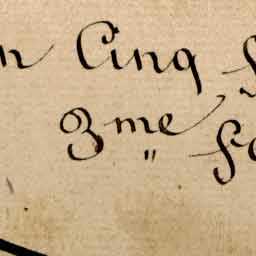 n Cinq
3me